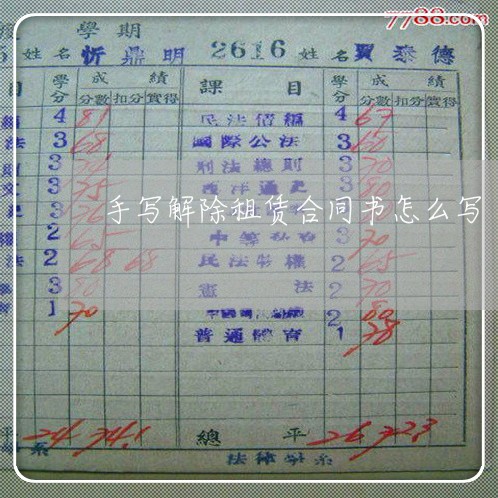 7788.com
學期
姓名 忻鼎明 2616 姓名 賈泰德
目 學分 成績 課目 學分 成績
分數 扣分 實得 分數 扣分 實得
4 81 民法債編 4 67
法 3 68 國際公法 3 60
3 刑法總則 3 70
3 75 西洋通史 3 80
手写解除租赁合同书怎么写
2 65 3 70
法 2 68 68 民法物權 2 65
3 80 憲法 2 70
1 70 2 80
普通體育 1 78
平 24 74.1 總平 26 72.3
系 法律學系